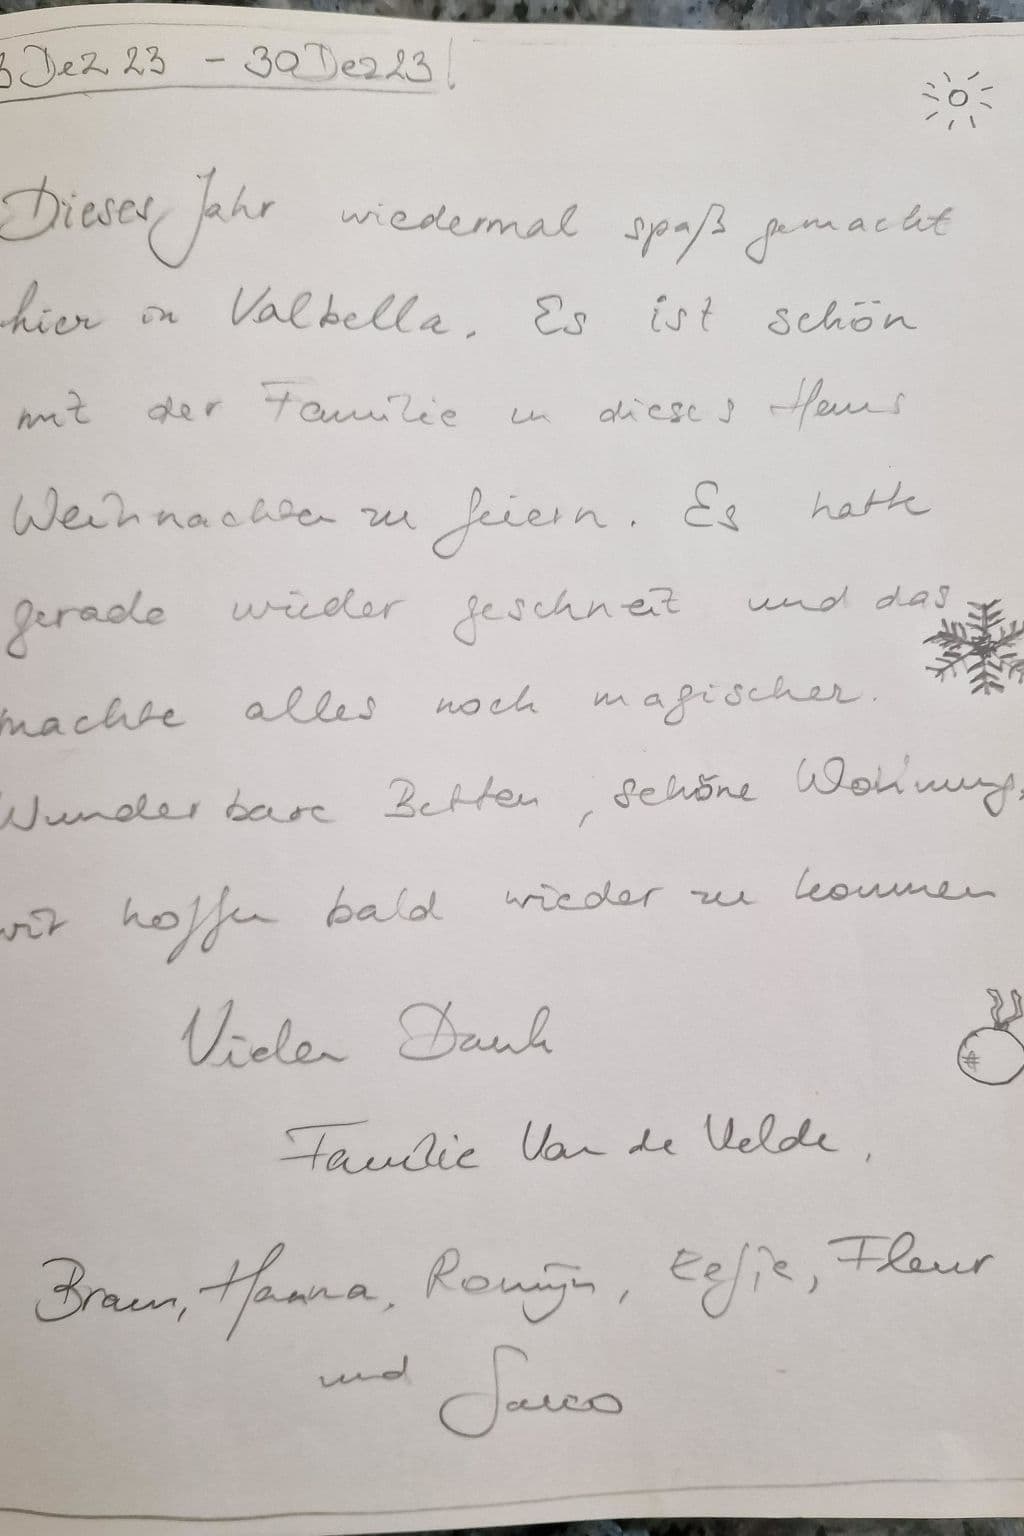 3 Dez 23 - 30 Dez 23
Dieses Jahr wiedermal spaß gemacht
hier in Valbella. Es ist schön
mit der Familie in dieses Haus
Weihnachten zu feiern. Es hatte
gerade wieder geschneit und das
machte alles noch magischer.
Wunderbare Betten, schöne Wohnung,
wir hoffen bald wieder zu kommen
Vielen Dank
Familie Van de Velde,
Bram, Hanna, Romijn, Eefje, Fleur
und